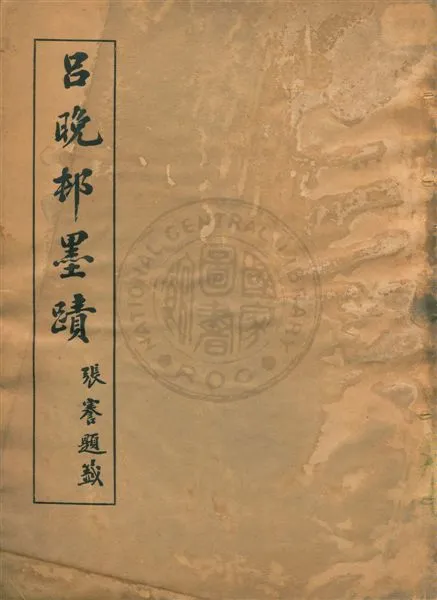 呂晚邨墨蹟
張謇題籤
NATIONAL CENTRAL LIBRARY
R.O.C.